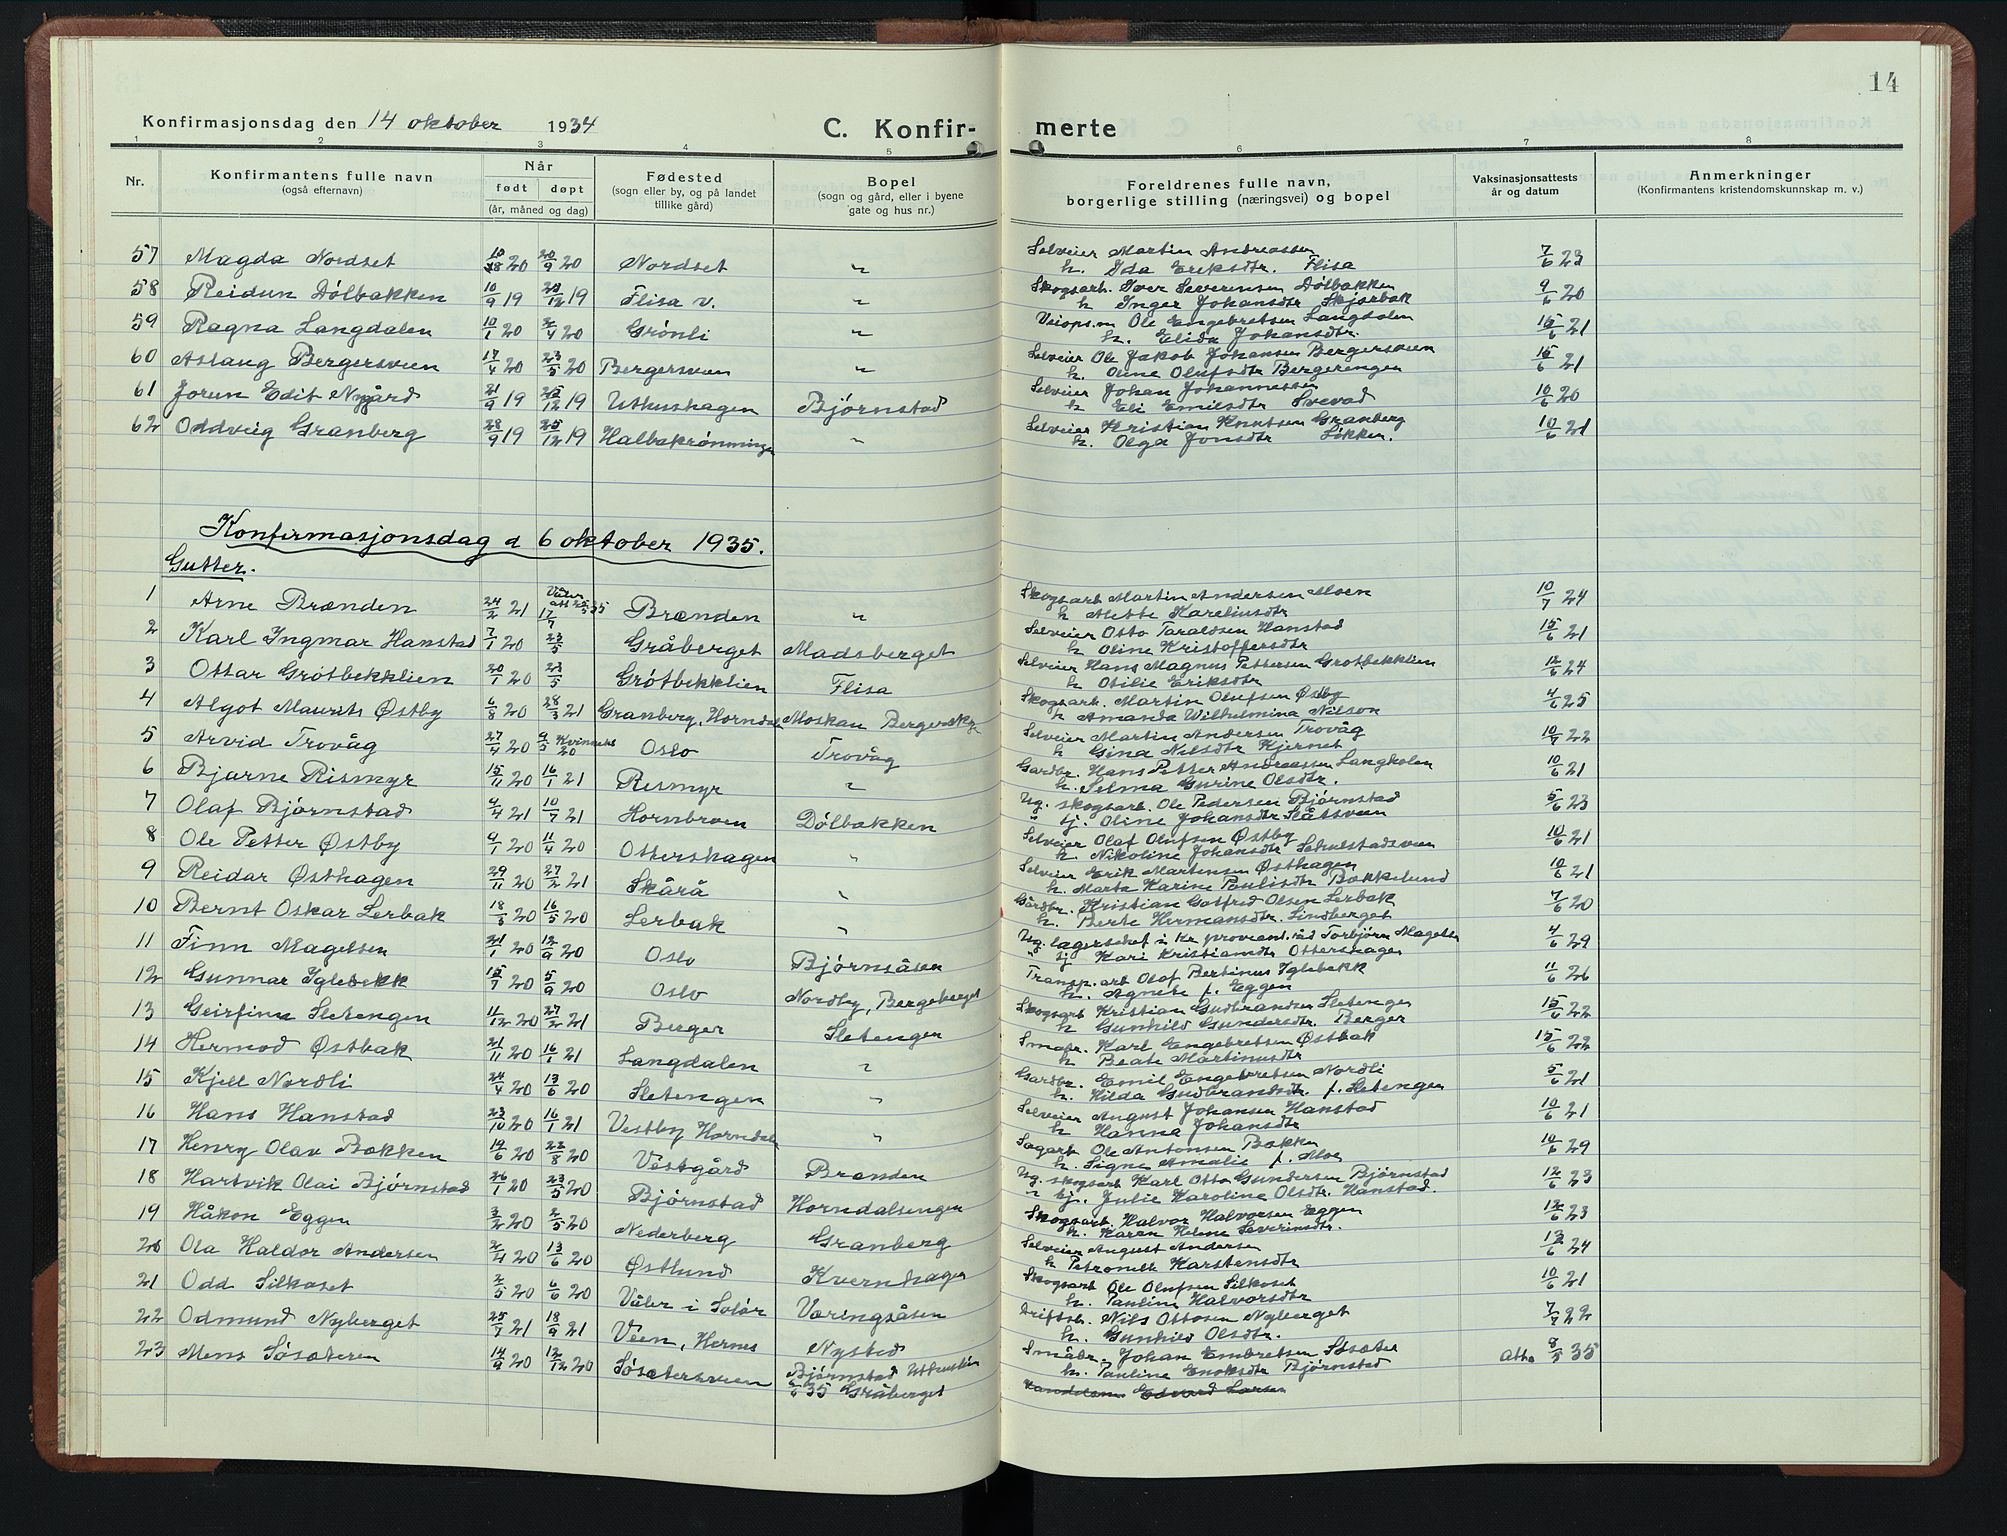 14
Konfirmasjonsdag den 14 oktober 1934 C. Konfir- merte
1 2 3 4 5 6 7 8
Nr. Konfirmantens fulle navn (også efternavn) Når født døpt (år, måned og dag) Fødested (sogn eller by, og på landet tillike gård) Bopel (sogn og gård, eller i byene gate og hus nr.) Foreldrenes fulle navn, borgerlige stilling (næringsvei) og bopel Vaksinasjonsattests år og datum Anmerkninger (Konfirmantens kristendomskunnskap m. v.)
57 Magda Nordset 20 20/9 20 Nordset " Selveier Martin Andreassen 7/6 23
h. Ida Eriksdtr. Flisa
58 Reidun Dølbakken 10/9 19 12 19 Flisa v. " Skogsarb. Iver Severinsen Dølbakken 9/6 20
h Inger Johansdtr Skjærbak
59 Ragna Langdalen 10/1 20 2/4 20 Grønli " Veiops.m Ole Engebretsen Langdalen 15/6 21
h. Elida Johansdtr.
60 Aslaug Bergersveen 17/4 20 23/5 20 Bergersveen " Selveier Ole Jakob Johansen Bergersveen 15/6 21
h. Oline Olufsdtr Bergerengen
61 Jorun Edit Nygård 21/9 19 25/12 19 Uthushagen Bjørnstad Selveier Johan Johannessen 10/6 20
h Eli Emilsdtr Svevad
62 Oddveig Granberg 28/9 19 25/12 19 Halbakrønningen " Selveier Kristian Knutsen Granberg 10/6 21
h. Olga Jonsdtr Løkker.
Konfirmasjonsdag d 6 oktober 1935.
Gutter.
1 Arne Brænden 24/2 21 17/7 Våler att 35 Brænden " Skogsarb Martin Andersen Moen 10/7 24
h Mette Kareliusdtr
2 Karl Ingmar Hanstad 7/1 20 23/5 Gråberget Madsberget Selveier Otto Taraldsen Hanstad 15/6 21
h Oline Kristoffersdtr
3 Ottar Grøtbekklien 20/1 20 23/5 Grøtbekklien Flisa Selveier Hans Magnus Pettersen Grøtbekklien 12/6 24
h Otilie Eriksdtr
4 Algot Maurits Østby 6/8 20 28/3 21 Granberg, Horndal Moskau Bergersky. Skogsarb. Martin Olufsen Østby 4/6 25
h Amanda Wilhelmina Nilson
5 Arvid Trovåg 27/4 20 9/5 20 Oslo Trovåg Selveier Martin Andersen Trovåg 10/7 22
h Gina Nilsdtr Kjernet
6 Bjarne Rismyr 15/11 20 16/1 21 Rismyr " Gardbr. Hans Petter Andreassen Langkolen 10/6 21
h. Selma Gurine Olsdtr.
7 Olaf Bjørnstad 9/4 21 10/7 21 Hornbroen Dølbakken Ug. skogsarb. Ole Pedersen Bjørnstad 5/6 23
" tj. Oline Johansdtr Slåttsveen
8 Ole Petter Østby 9/1 20 11/4 20 Ottershagen " Selveier Olaf Olufsen Østby 10/6 21
h. Nikoline Johansdtr
9 Reidar Østhagen 29/11 20 27/2 21 Skårå " Selveier Erik Martensen Østhagen 10/6 21
h. Marta Karine Paulsdtr Bakkelund
10 Bernt Oskar Lerbak 18/3 20 16/5 20 Lerbak " Gårdbr. Kristian Gotfred Olsen Lerbak 7/6 20
h. Berte Hermansdtr. Lindberget
11 Finn Magelsen 21/1 20 12/9 20 Oslo Bjørnsåsen Ug. lagerschef i Kr proviant. råd Torbjørn Magelsn 4/6 29
" tj Kari Kristiansdtr Ottershagen
12 Gunnar Iglebekk 15/7 20 5/9 20 Oslo Nordby, Bergeberget Transp. arb Olaf Bertinus Iglebekk 11/6 26
h. Agnete f. Eggen
13 Geirfinn Sletengen 11/12 20 27/2 21 Berger Sletengen Skogsarb Kristian Gudbrandsen Sletengen 15/6 22
h Gunhild Gundersdtr. Berger
14 Hermod Østbak 21/11 20 16/1 21 Langdalen " Småbr. Karl Engebretsen Østbak 15/6 22
h Beate Martinusdtr
15 Kjell Nordli 24/4 20 13/6 20 Sletengen " Gardbr. Emil Engebretsen Nordli 5/6 21
h. Hilda Gudbrandsdtr. f. Sletengen
16 Hans Hanstad 23/10 20 16/1 21 Vestby Horndalen " Selveier August Johansen Hanstad 10/6 21
h Hanna Johansdtr
17 Henry Olav Bakken 19/6 20 22/8 20 Vestgård Brænden Sagarb Ole Antonsen Bakken 10/6 29
h. Signe Amalie f. Moe
18 Hartvik Olai Bjørnstad 26/1 20 23/5 20 Bjørnstad Horndalsengen Ug. skogsarb Karl Otto Gundersen Bjørnstad 12/6 23
" tj. Julie Karoline Olsdtr. Hanstad.
19 Håkon Eggen 3/2 20 2/5 20 Nederberg Granberg Skogsarb. Halvor Halvorsen Eggen 12/6 23
h. Karen Helene Severinsdtr.
20 Ola Haldor Andersen 2/4 20 13/6 20 Østlund Kverndhagen Selveier August Andersen 13/6 24
h Petronelle Karstensdtr
21 Odd Silkoset 2/5 20 6/6 20 Våler i Solør Væringsåsen Skogsarb Ole Olufsen Silkoset 10/6 21
h. Pauline Halvorsdtr
22 Odmund Nyberget 25/7 21 18/9 21 Veen, Hernes Nysted Driftsb. Nils Ottosen Nyberget 7/7 22
h. Gunhild Olsdtr.
23 Mens Søsæteren 14/9 20 12/12 20 Søsætersveen Bjørnstad Småbr. Johan Embretsen Søsæter Att. 8/5 35
35 Gråberget h. Pauline Enoksdtr Bjørnstad
Edvard Larsen